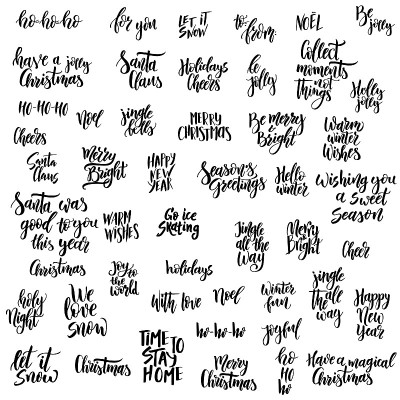 ho-ho-ho
for you
LET IT
SNOW
to:
from:
NOËL
Be
jolly
have a jolly
Christmas
Santa
Claus
Holidays
Cheers
be
jolly
Collect
moments
not
things
Holly
jolly
HO-HO-HO
Noel
jingle
bells
MERRY
CHRISTMAS
Be merry
&
Bright
Warm
winter
Wishes
Cheers
Santa
Claus
Merry
& Bright
HAPPY
NEW
YEAR
Season's
Greetings
Hello
winter
Wishing you
a Sweet
Season
Santa was
good to you
this year
WARM
WISHES
Go ice
Skating
Jingle
all the
way
Merry
& Bright
Cheer
Christmas
Joy
to
the
world
holidays
holy
Night
We
love
Snow
with love
Noel
winter
fun
jingle
all
the
way
Happy
New
Year
let it
Snow
Christmas
TIME TO
STAY
HOME
ho-ho-ho
Merry
Christmas
joyful
ho
HO
ho
Have a magical
Christmas